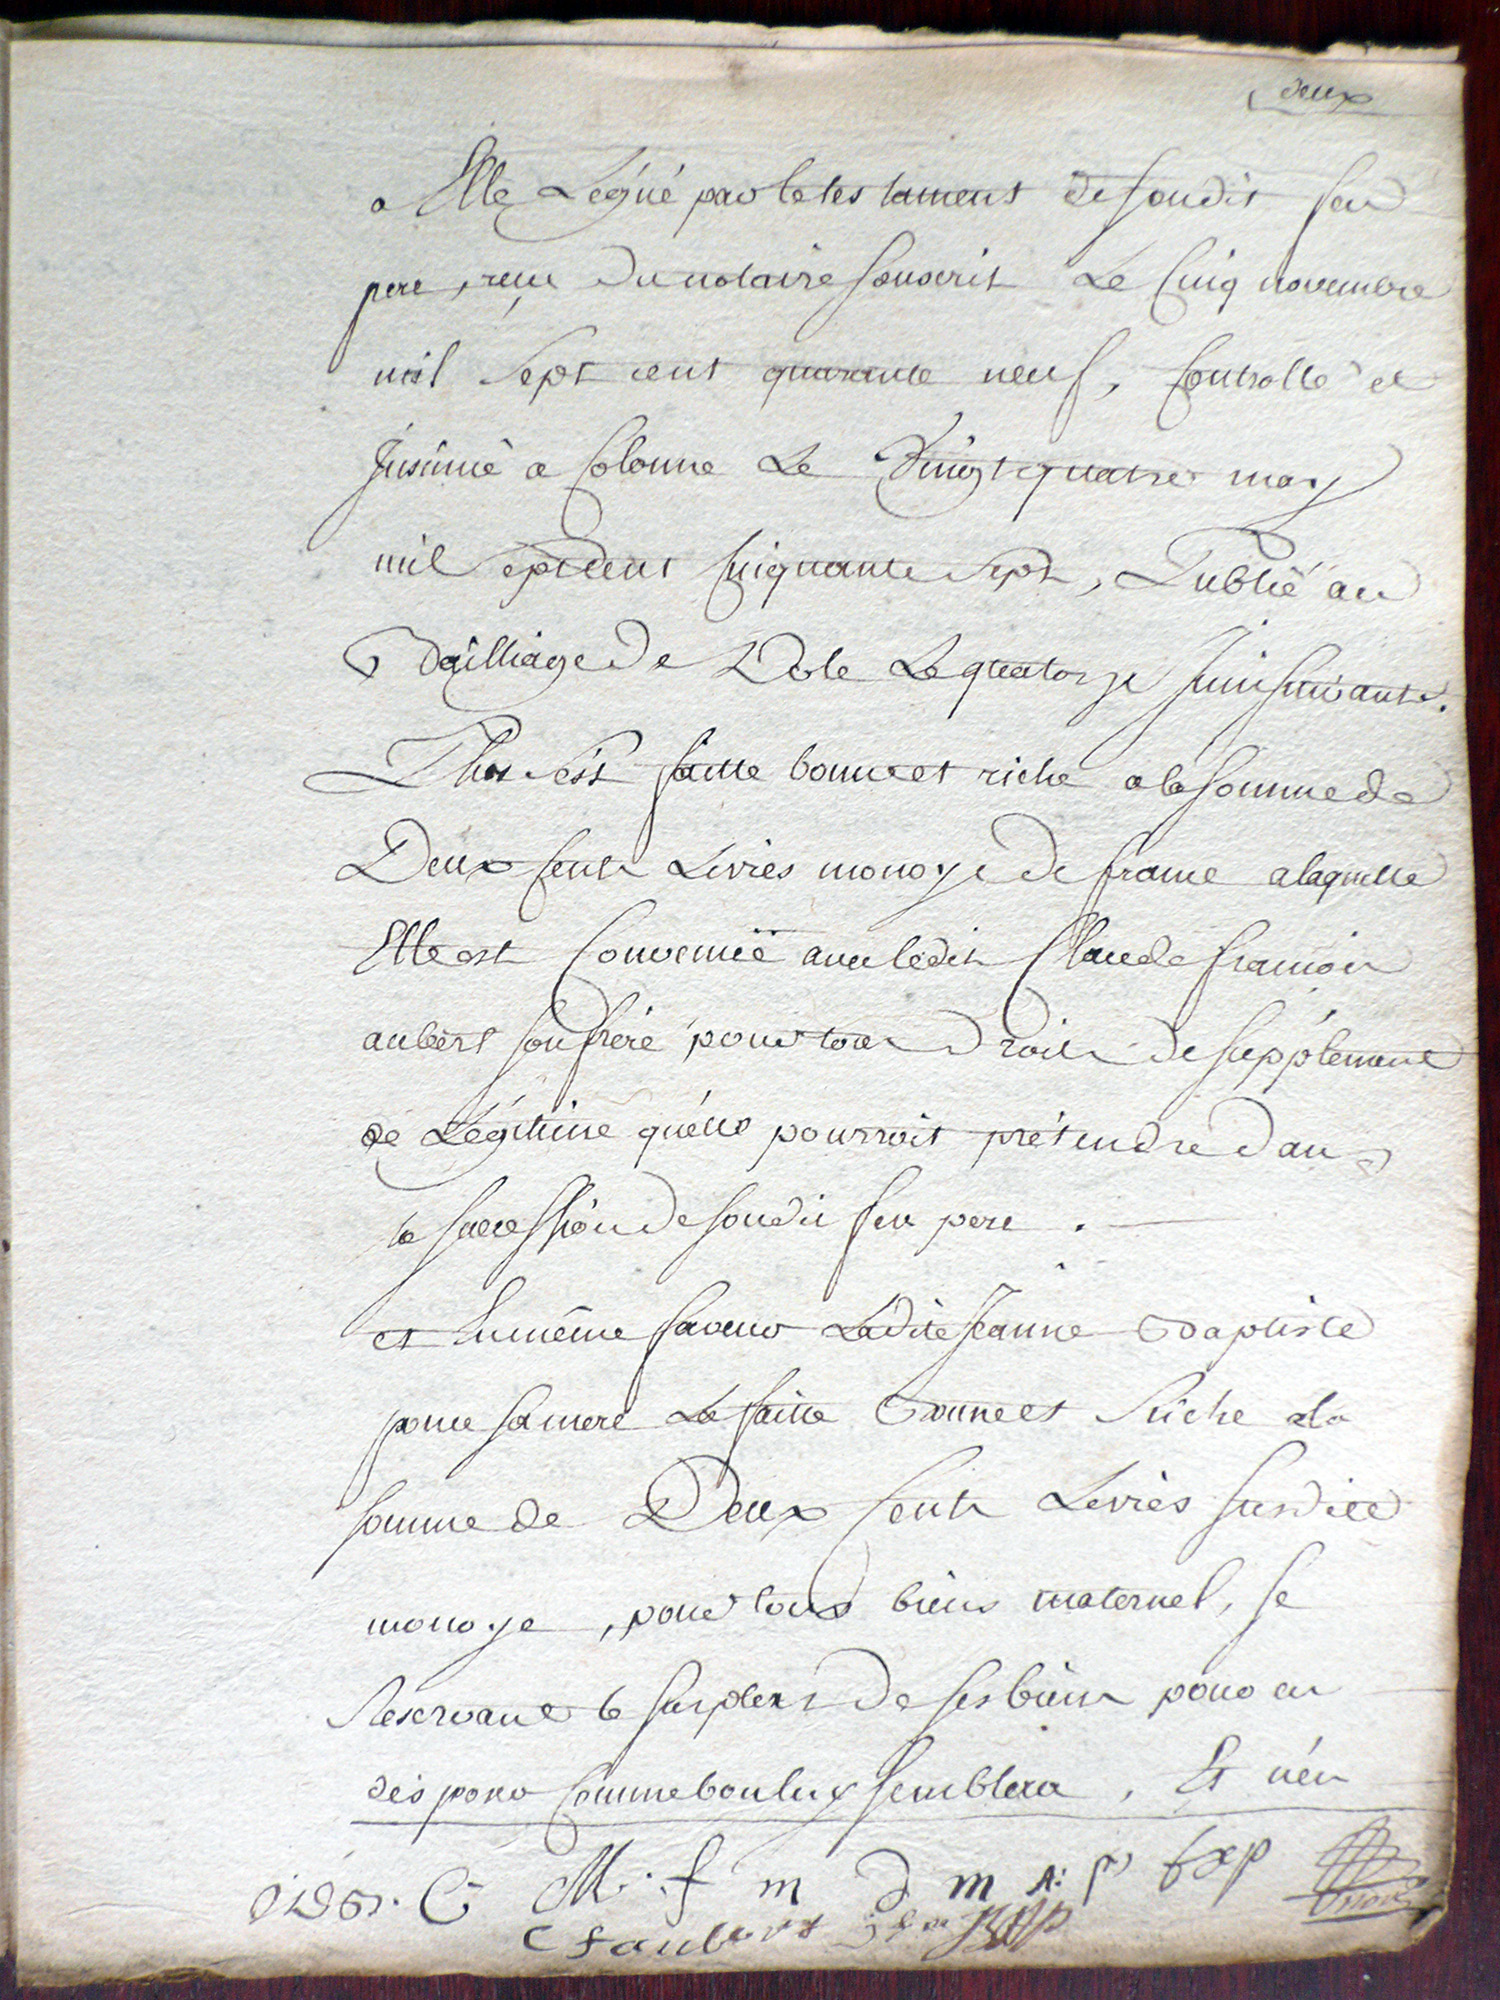 deux
a Elle Legué par le testament de sondit feu
pere, reçu du notaire souscrit Le Cinq novembre
mil Sept cent quarante neuf, Controllé et
Jnsinué a Colonne Le Vingt quatre may
mil Sept Cent Cinquante Sept, Publié au
Bailliage de Dole Le quatorze Juin suivant.
Plus s'est faitte bonne et riche a la somme de
Deux Cents Livres monoye de france a laquelle
Elle est Convenuë avec ledit Claude françois
aubert son frere pour tous Droits de supplement
de Légitime qu'elle pourroit prétendre dans
la succession de sondit feu pere.
et En même faveur Ladite Jeanne Baptiste
pour sa mere La faitte Bonne et Riche a la
somme de Deux Cents Livres susditte
monoye, pour tous biens maternel, se
Reservant le surplus de ses biens pour en
disposer Comme bon luy semblera, Et n'en
M. f m d m A: p
C f aubert